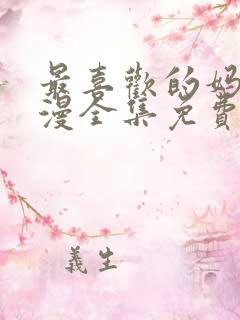 最喜歡的妈
漫全集免費
義生